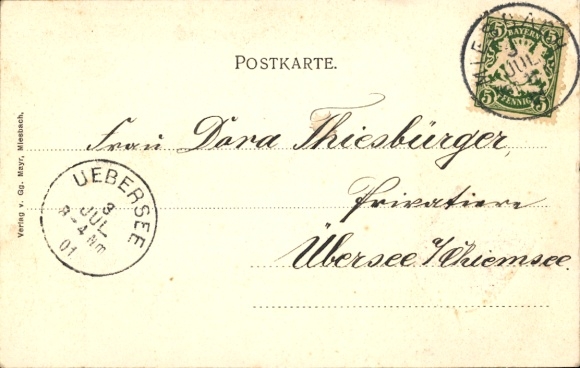 POSTKARTE.
5 BAYERN 5
5 PFENNIG 5
MIESBACH
JUL
Frau Dora Thiesbürger,
Privatiere
Übersee a/Chiemsee.
UEBERSEE
3
JUL
3-4 Nm
01
Verlag v. Gg. Mayr, Miesbach.